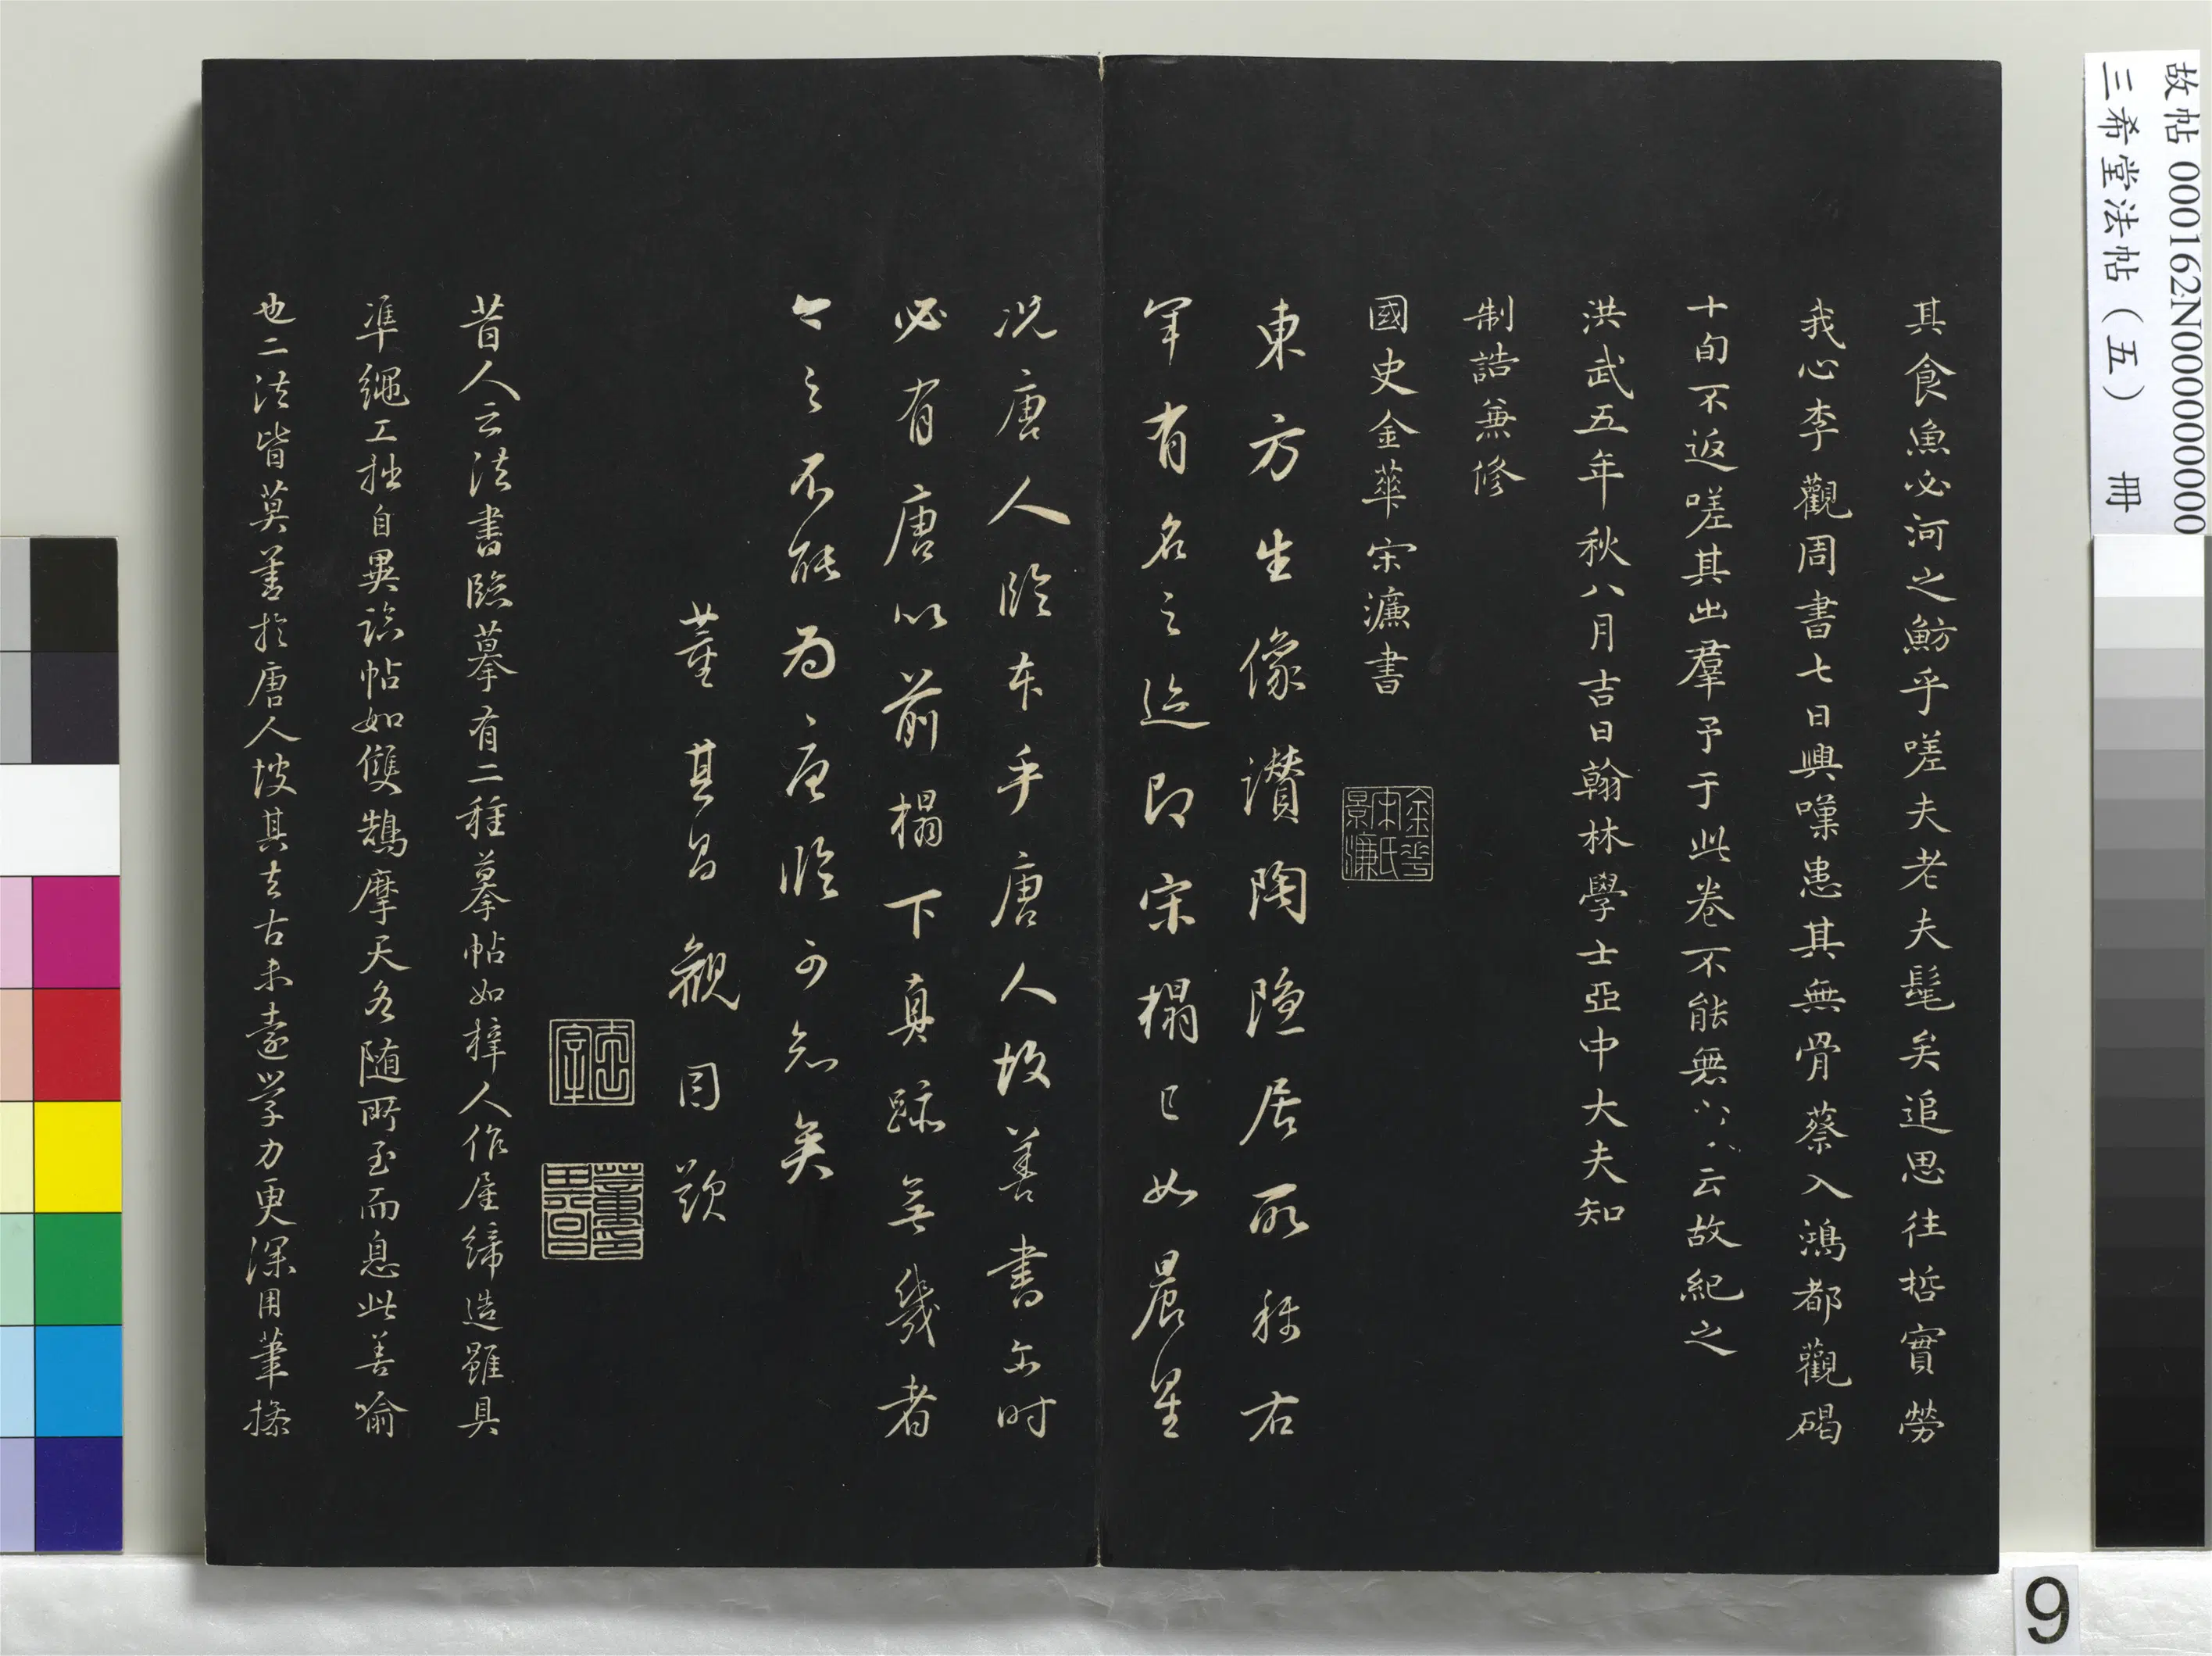 其食魚必河之魴乎嗟夫老夫髦矣追思往哲實勞
我心李觀周書七日興嘆患其無骨蔡入鴻都觀碣
十旬不返嗟其出羣予于此卷不能無 云故紀之
洪武五年秋八月吉日翰林學士亞中大夫知
制誥兼修
國史金華宋濂書
金華宋氏景濂
東方生像讃陶隐居所稱右
軍有名之迹即宋榻已如晨星
况唐人臨本乎唐人故善書尔时
必有唐以前榻下真跡無幾者
今之不能為唐臨可知矣
董其昌觀因題
董其昌印
昔人云法書臨摹有二種摹帖如梓人作屋締造雖具
準繩工拙自異臨帖如雙鵠摩天各随所至而息此善喻
也二法皆莫善於唐人坡其去古未遠学力更深用筆搽
故帖 000162N000000000
三希堂法帖（五） 冊
9